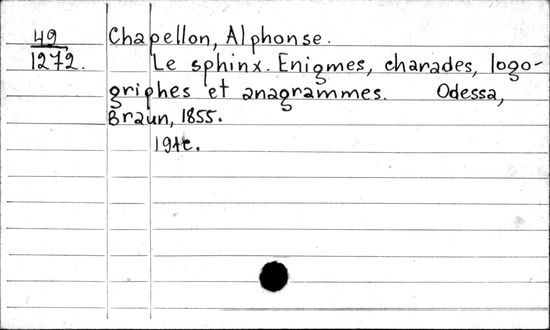 49 Chapellon, Alphonse.
1272. Le sphinx. Enigmes, charades, logo-
griphes et anagrammes. Odessa,
Braun, 1855.